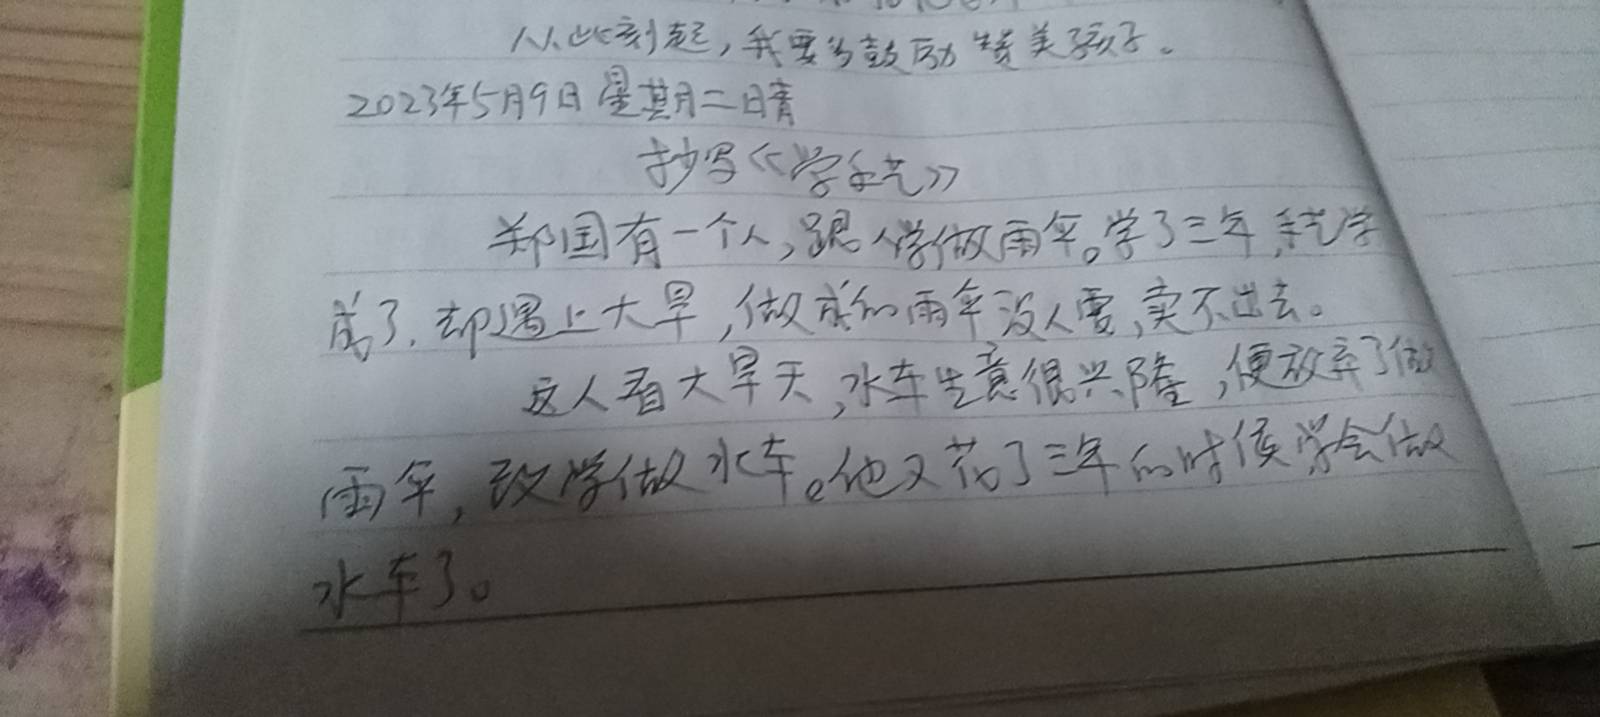 从此刻起，我要多鼓励赞美孩子。
2023年5月9日 星期二 晴
抄写《学手艺》
郑国有一个人，跟人学做雨伞。学了三年，手艺学
成了，却遇上大旱，做成的雨伞没人要，卖不出去。
这人看大旱天，水车生意很兴隆，便放弃了做
雨伞，改学做水车。他又花了三年的时候学会做
水车了。